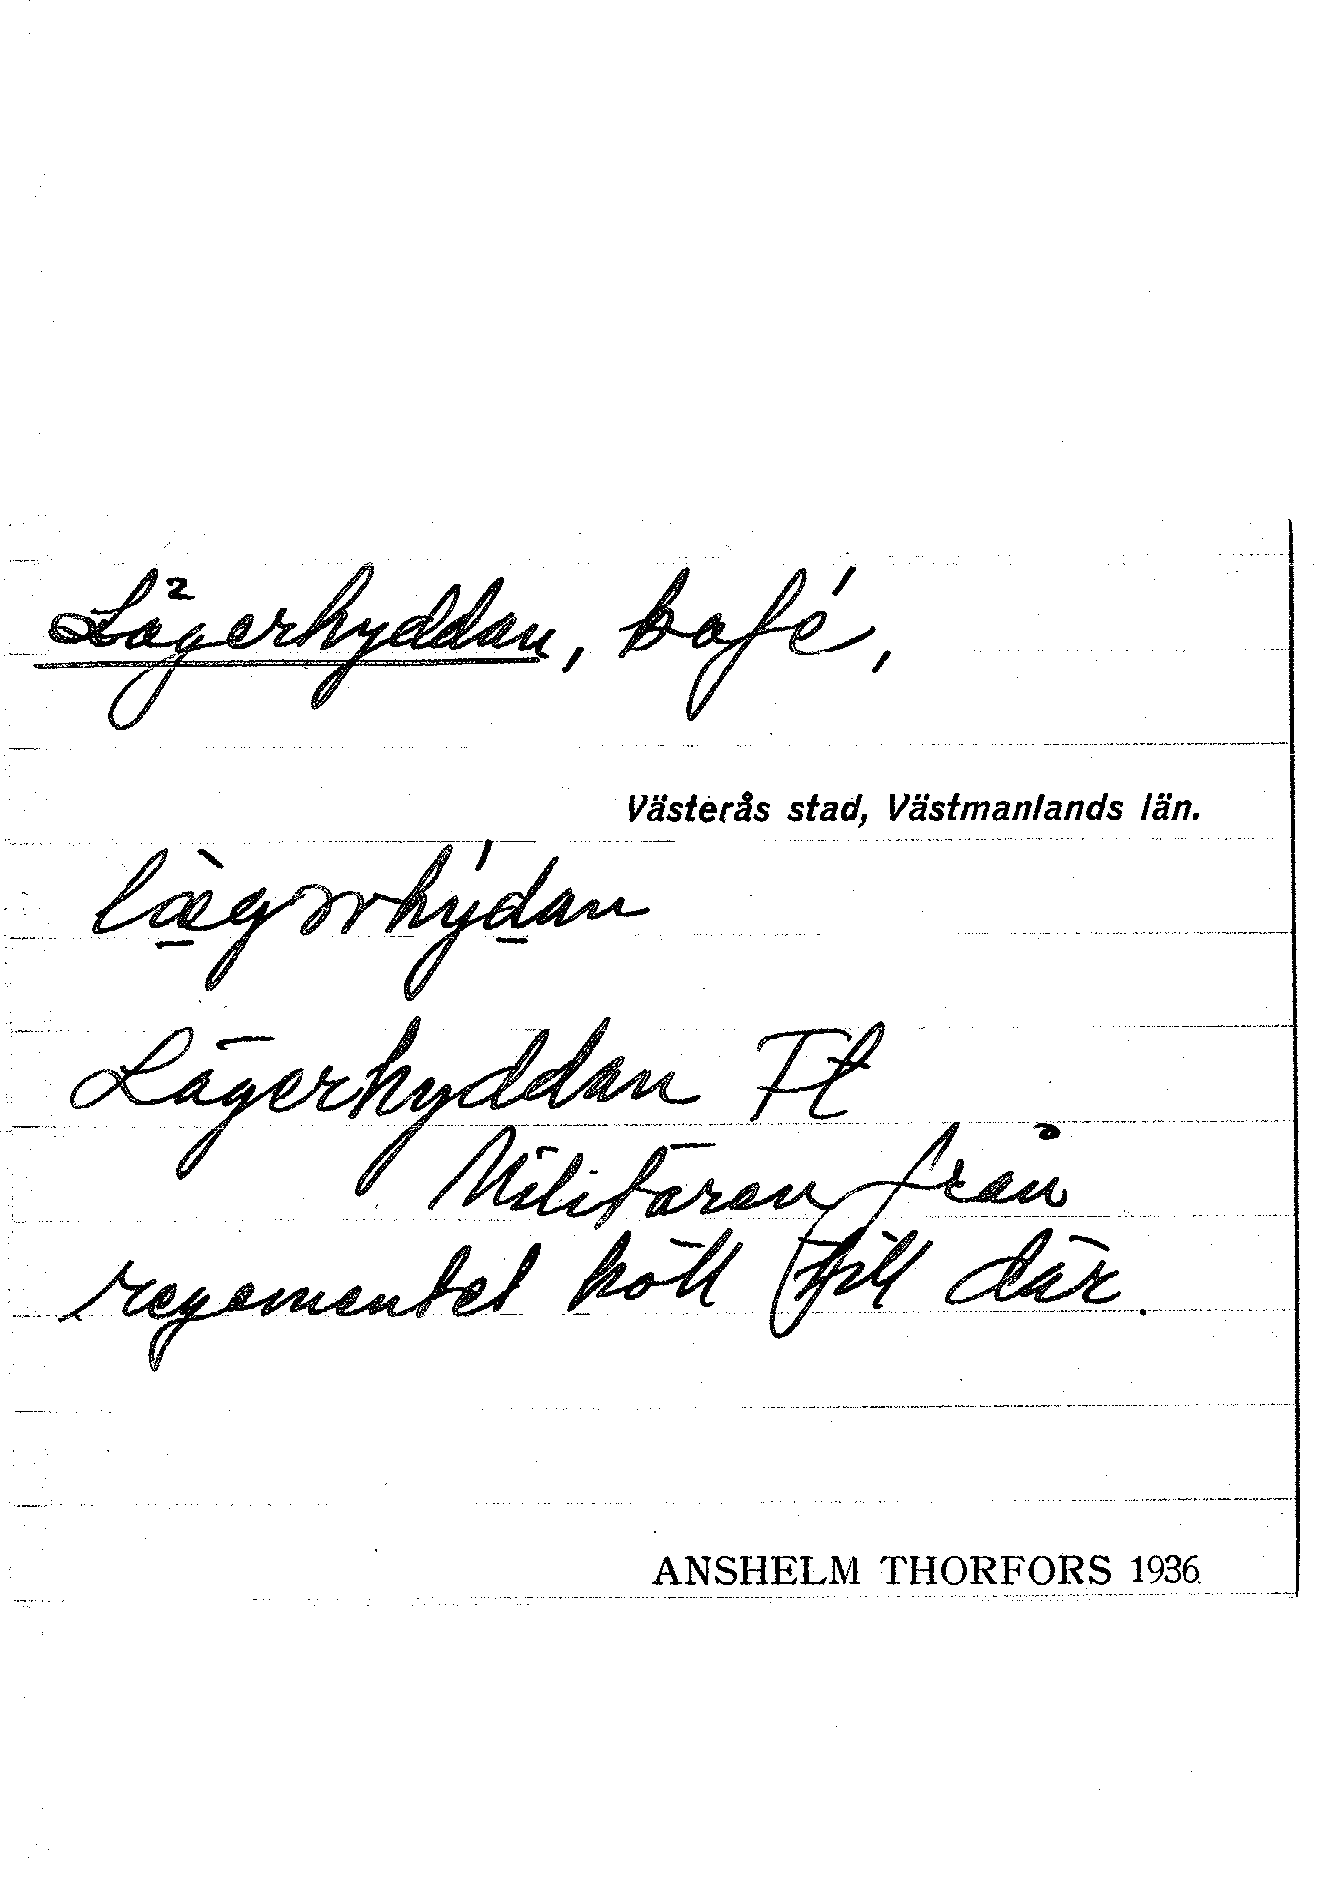 Lägerhyddan, kafé,
Västerås stad, Västmanlands län.
læ̀gərhýdan
Lägerhyddan Ft
Militären från
regementet höll till där.
ANSHELM THORFORS 1936